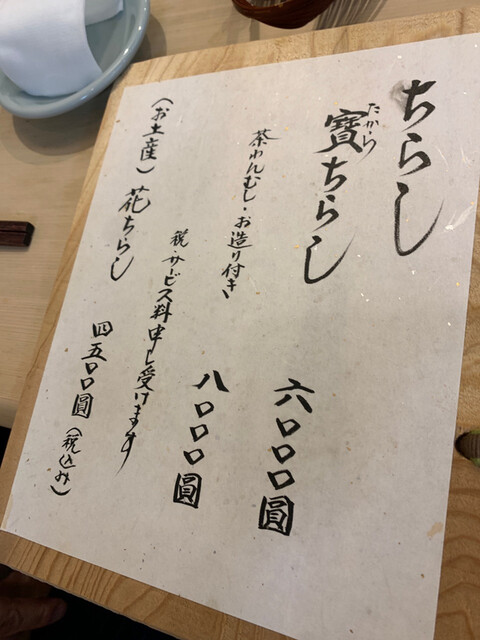 ちらし
寶ちらし
たから
六〇〇〇圓
茶わんむし・お造り付き
八〇〇〇圓
税・サービス料申し受けます
(お土産) 花ちらし
四五〇〇圓(税込み)